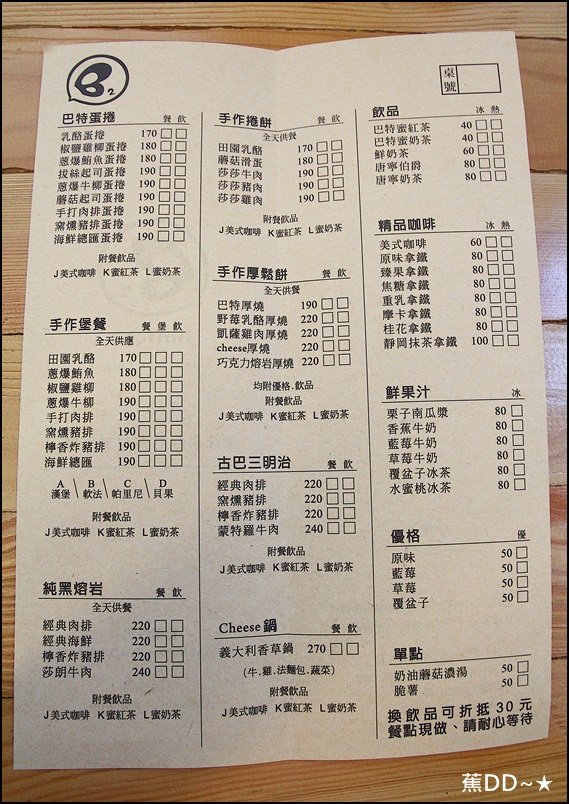 B2
桌號
巴特蛋捲 餐 飲
乳酪蛋捲 170□□
椒鹽雞柳蛋捲 180□□
蔥爆鮪魚蛋捲 180□□
拔絲起司蛋捲 190□□
蔥爆牛柳蛋捲 190□□
蘑菇起司蛋捲 190□□
手打肉排蛋捲 190□□
窯燻豬排蛋捲 190□□
海鮮總匯蛋捲 190□□
附餐飲品
J美式咖啡 K蜜紅茶 L蜜奶茶
手作堡餐 餐 堡 飲
全天供應
田園乳酪 170□□□
蔥爆鮪魚 180□□□
椒鹽雞柳 180□□□
蔥爆牛柳 190□□□
手打肉排 190□□□
窯燻豬排 190□□□
檸香炸豬排 190□□□
海鮮總匯 190□□□
A B C D
漢堡\軟法\帕里尼\貝果
附餐飲品
J美式咖啡 K蜜紅茶 L蜜奶茶
純黑熔岩 餐 飲
全天供餐
經典肉排 220□□
經典海鮮 220□□
檸香炸豬排 220□□
莎朗牛肉 240□□
附餐飲品
J美式咖啡 K蜜紅茶 L蜜奶茶
手作捲餅 餐 飲
全天供餐
田園乳酪 170□□
蘑菇滑蛋 180□□
莎莎牛肉 190□□
莎莎豬肉 190□□
莎莎雞肉 190□□
附餐飲品
J美式咖啡 K蜜紅茶 L蜜奶茶
手作厚鬆餅 餐 飲
全天供餐
巴特厚燒 190□□
野莓乳酪厚燒 220□□
凱薩雞肉厚燒 220□□
cheese厚燒 220□□
巧克力熔岩厚燒 220□□
均附優格.飲品
附餐飲品
J美式咖啡 K蜜紅茶 L蜜奶茶
古巴三明治 餐 飲
經典肉排 220□□
窯燻豬排 220□□
檸香炸豬排 220□□
蒙特羅牛肉 240□□
附餐飲品
J美式咖啡 K蜜紅茶 L蜜奶茶
Cheese鍋 餐 飲
義大利香草鍋 270□□
(牛.雞.法麵包.蔬菜)
附餐飲品
J美式咖啡 K蜜紅茶 L蜜奶茶
飲品 冰 熱
巴特蜜紅茶 40□□
巴特蜜奶茶 40□□
鮮奶茶 60□□
唐寧伯爵 80□□
唐寧奶茶 80□□
精品咖啡 冰 熱
美式咖啡 60□□
原味拿鐵 80□□
臻果拿鐵 80□□
焦糖拿鐵 80□□
重乳拿鐵 80□□
摩卡拿鐵 80□□
桂花拿鐵 80□□
靜岡抹茶拿鐵 100□□
鮮果汁 冰
栗子南瓜漿 80□
香蕉牛奶 80□
藍莓牛奶 80□
草莓牛奶 80□
覆盆子冰茶 80□
水蜜桃冰茶 80□
優格 優
原味 50□
藍莓 50□
草莓 50□
覆盆子 50□
單點
奶油蘑菇濃湯 50□
脆薯 50□
換飲品可折抵30元
餐點現做、請耐心等待
蕉DD~★